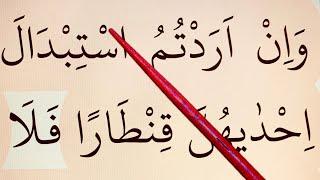 وَاِنْ اَرَدْتُمُ اسْتِبْدَالَ
اِحْدٰيهُنَّ قِنْطَارًا فَلَا